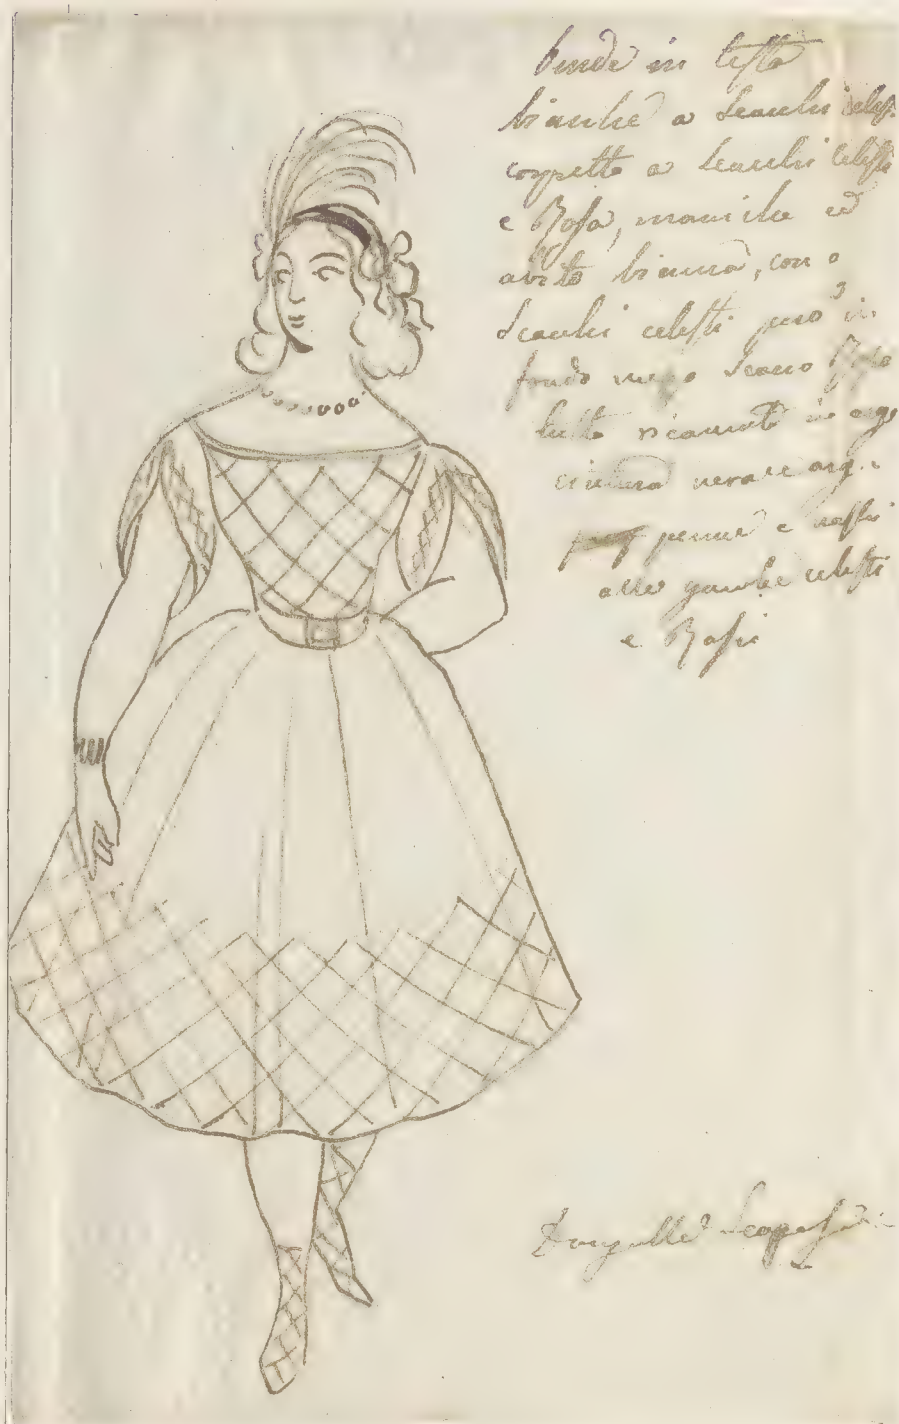 bende in testa
bianche a Scachi celes.
corpetto a Scachi Celesti
e Rosa, maniche ed
abito bianco, con
Scachi celesti però in
fondo Scaco Rosa
tutto ricamato in arg
cintura nera e arg.
penne e nastri
alle gambe celesti
e Rosa